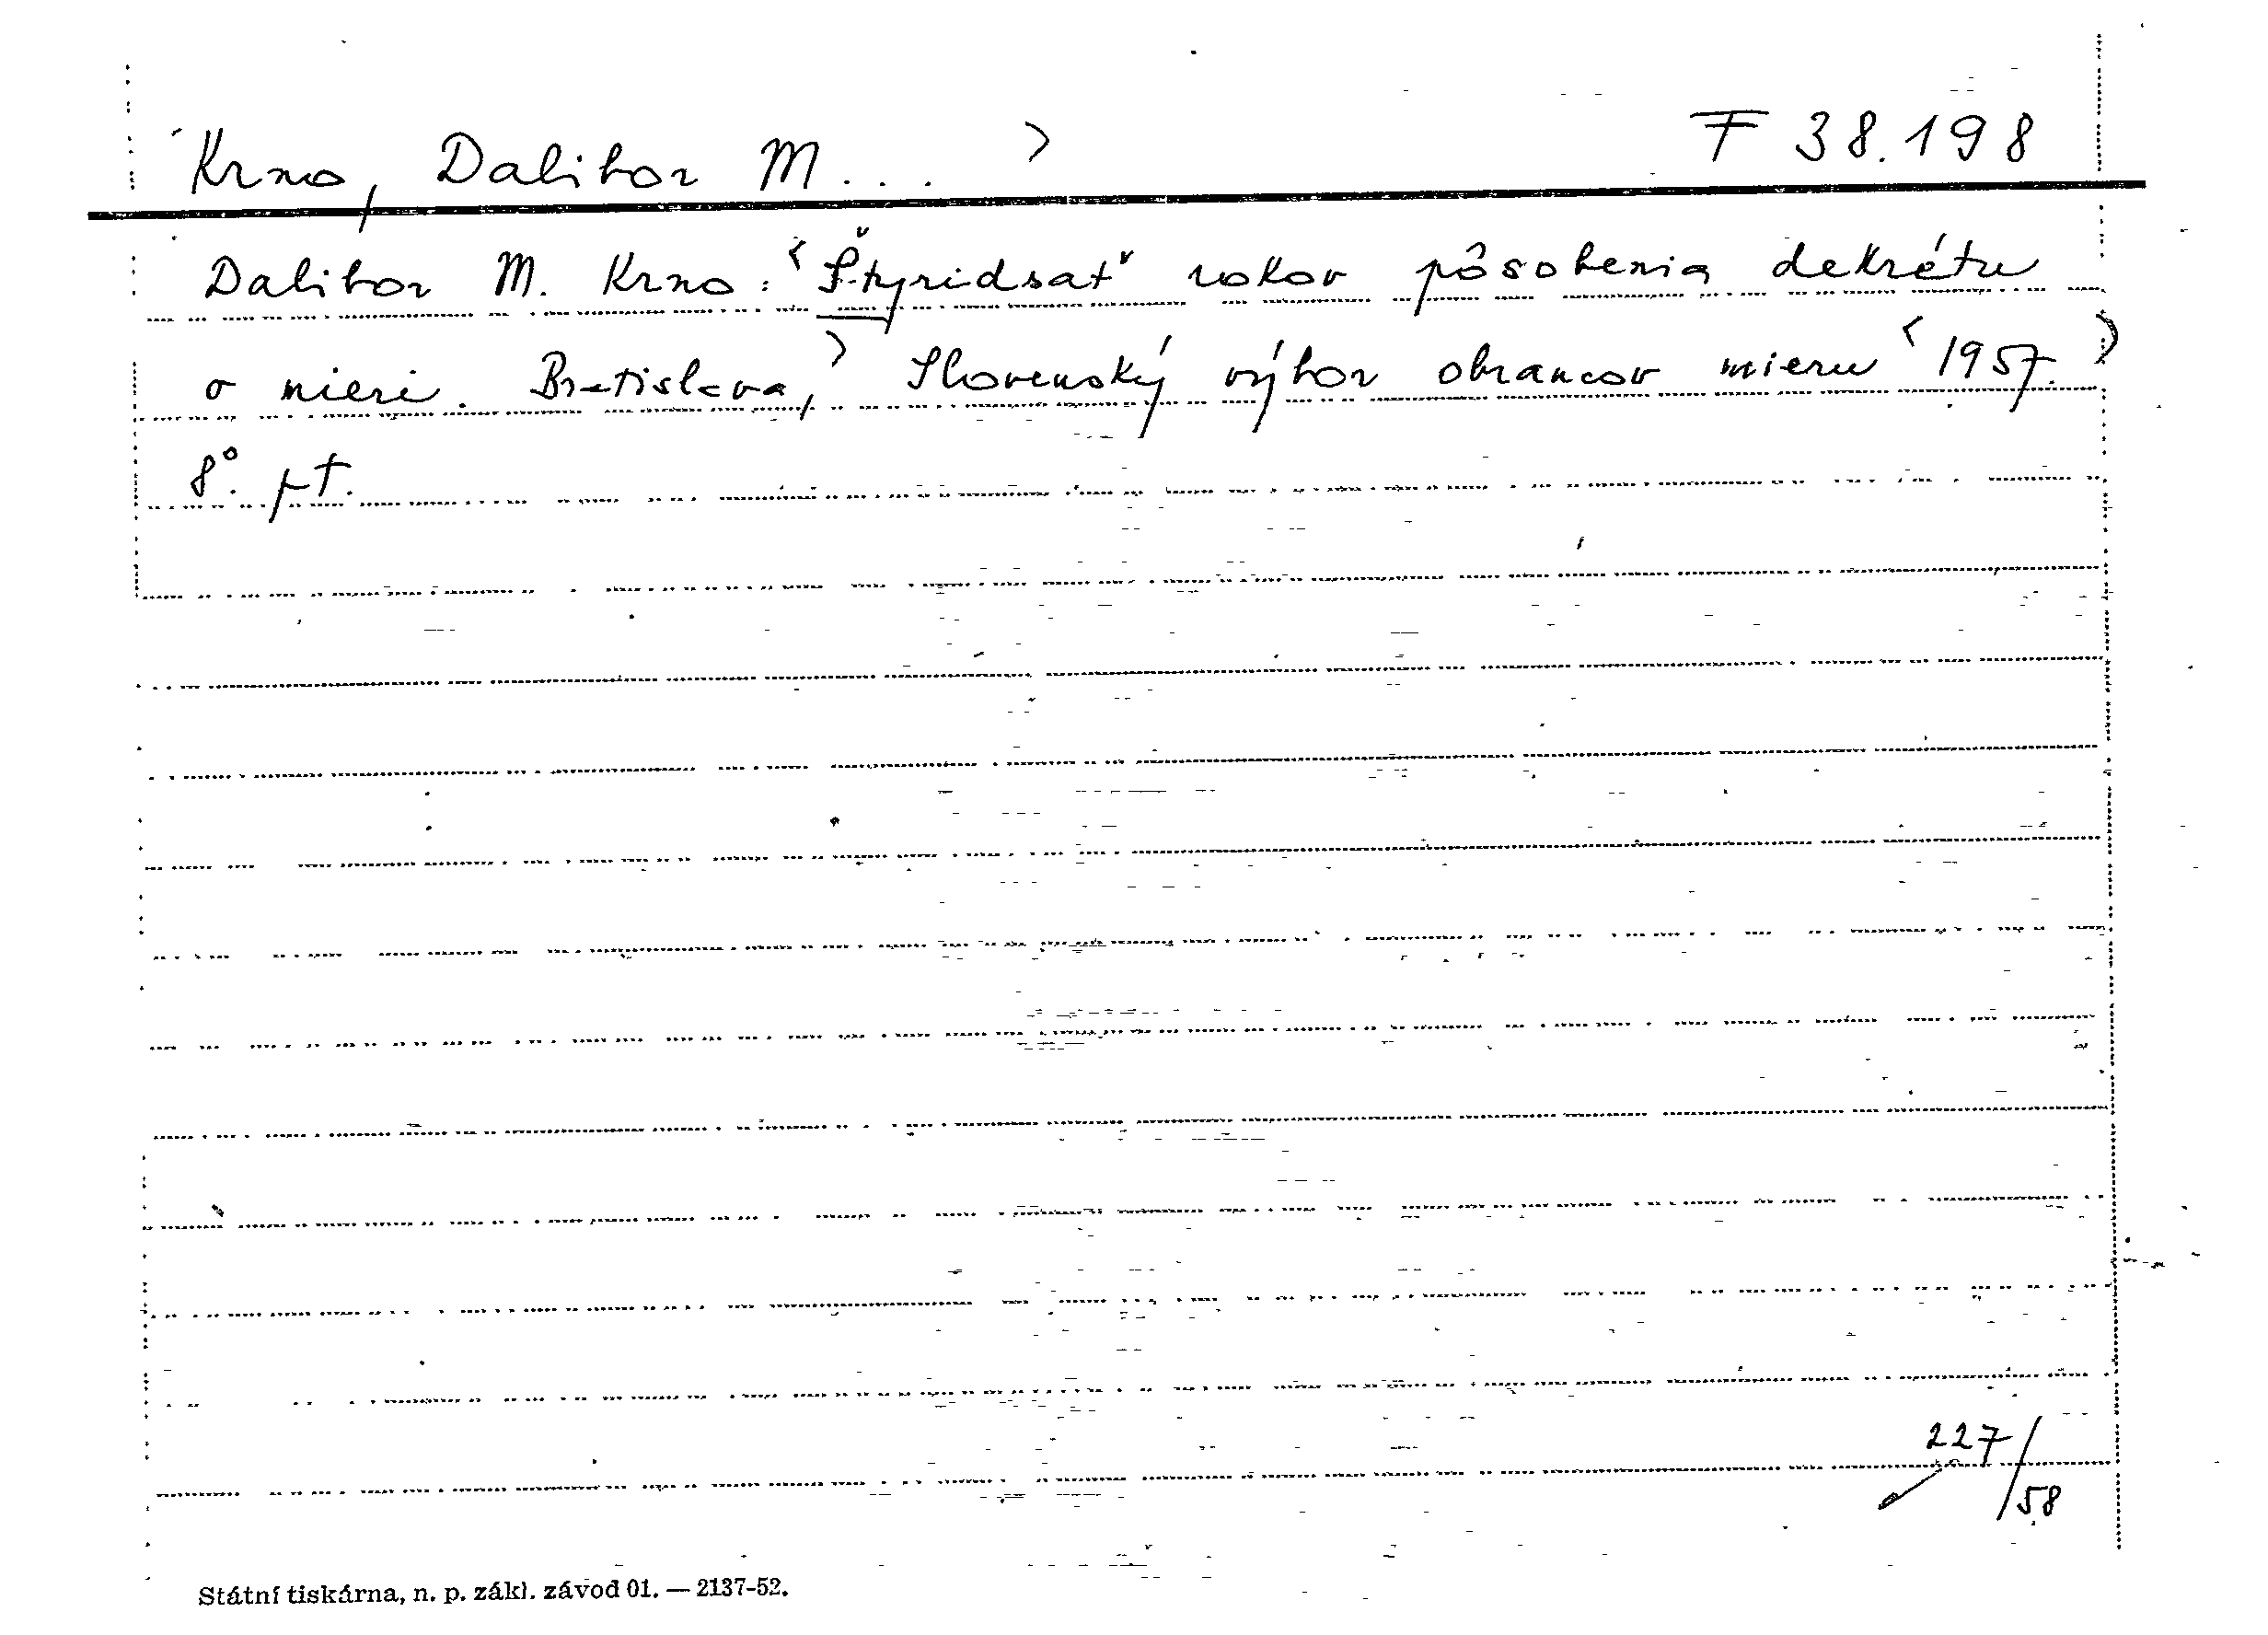 Krno, Dalibor M... > F 38.198
Dalibor M. Krno: <Štyridsať rokov pôsobenia dekrétu
o mieri. Bratislava,> Slovenský výbor obrancov mieru <1957.>
8°. pt.
227/58
Státní tiskárna, n. p. zákl. závod 01. — 2137-52.